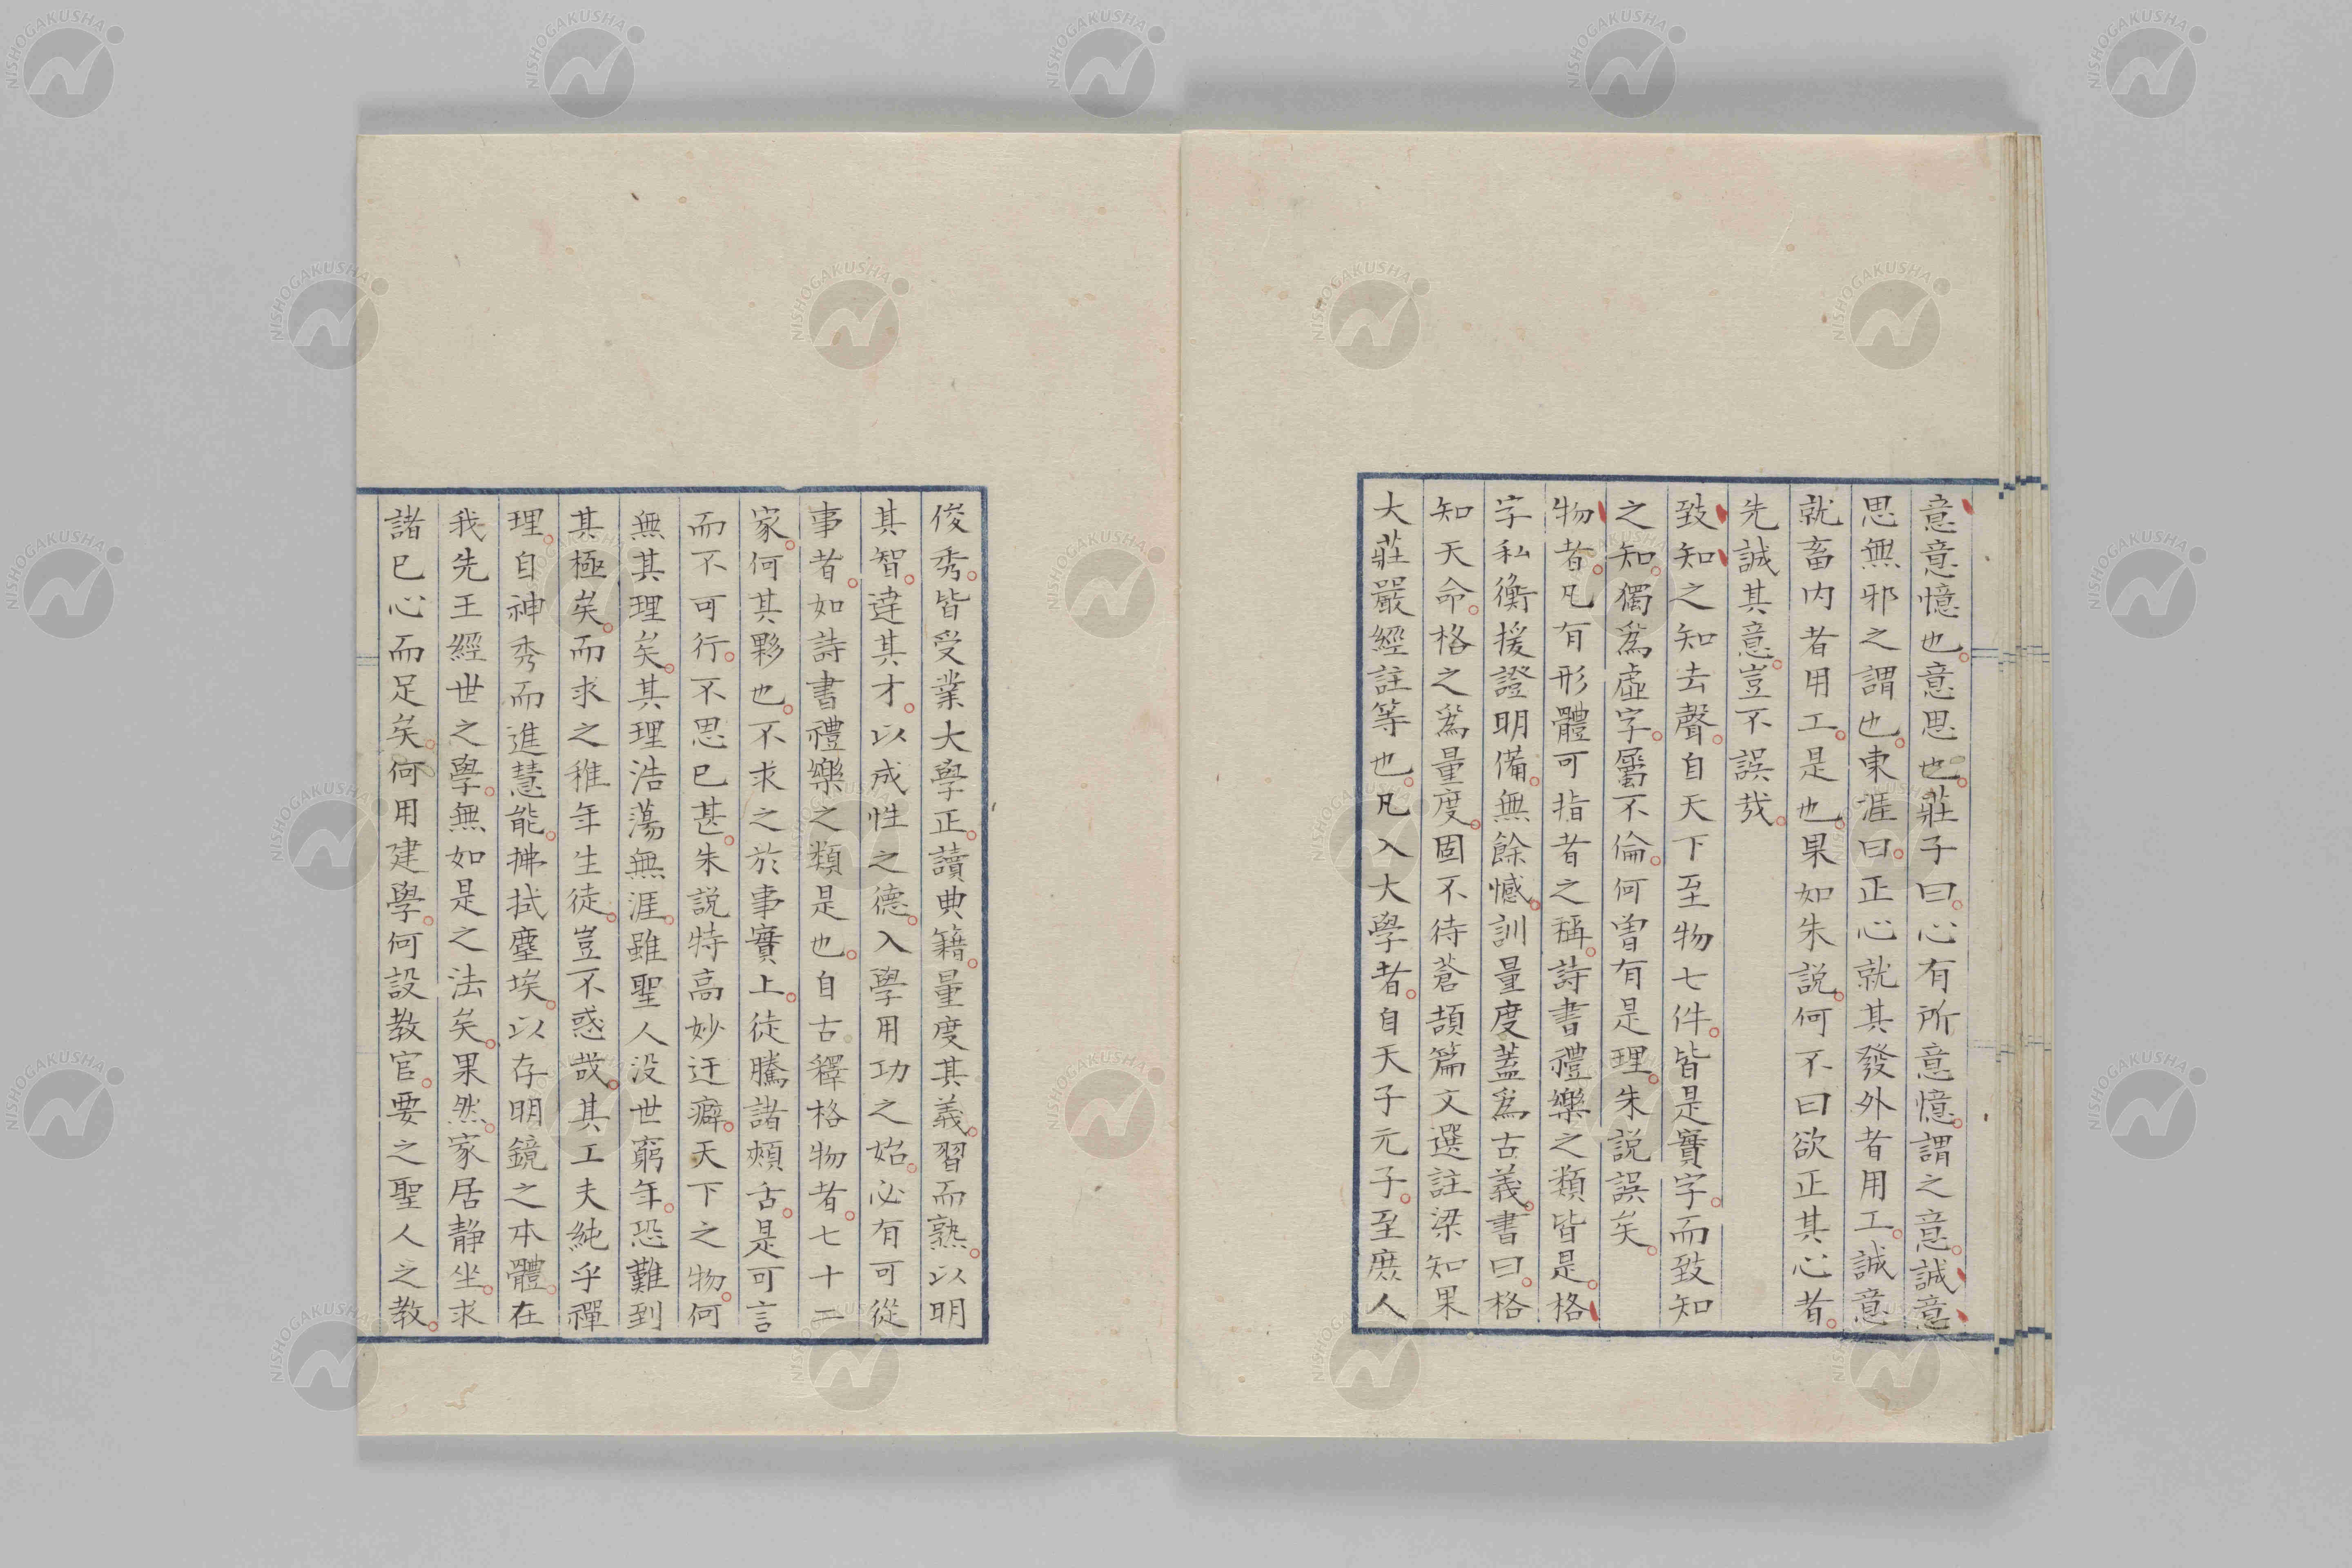 意意憶也。意思也。莊子曰。心有所意憶。謂之意。誠意
思無邪之謂也。東涯曰。正心就其發外者用工。誠意
就畜内者用工。是也。果如朱説。何不曰欲正其心者。
先誠其意。豈不誤哉。
致知之知去聲。自天下至物七件。皆是實字。而致知
之知。獨爲虛字。屬不倫。何曽有是理。朱説誤矣。
物者。凡有形體可指者之稱。詩書禮樂之類皆是。格
字私衡援證明備。無餘憾。訓量度蓋爲古義。書曰。格
知天命。格之爲量度。固不待蒼頡篇文選註梁知果
大莊嚴經註等也。凡入大學者。自天子元子。至庶人
俊秀。皆受業大學正。讀典籍。量度其義。習而熟。以明
其智。達其才。以成性之德。入學用功之始。必有可從
事者。如詩書禮樂之類是也。自古釋格物者。七十二
家。何其夥也。不求之於事實上。徒騰諸頰舌。是可言
而不可行。不思已甚。朱説特高妙迂癖。天下之物。何
無其理矣。其理浩蕩無涯。雖聖人没世窮年。恐難到
其極矣。而求之稚年生徒。豈不惑哉。其工夫純乎禪
理。自神秀而進慧能。拂拭塵埃。以存明鏡之本體。在
我先王經世之學。無如是之法矣。果然。家居静坐。求
諸已心而足矣。何用建學。何設教官。要之聖人之教。
NISHOGAKUSHA